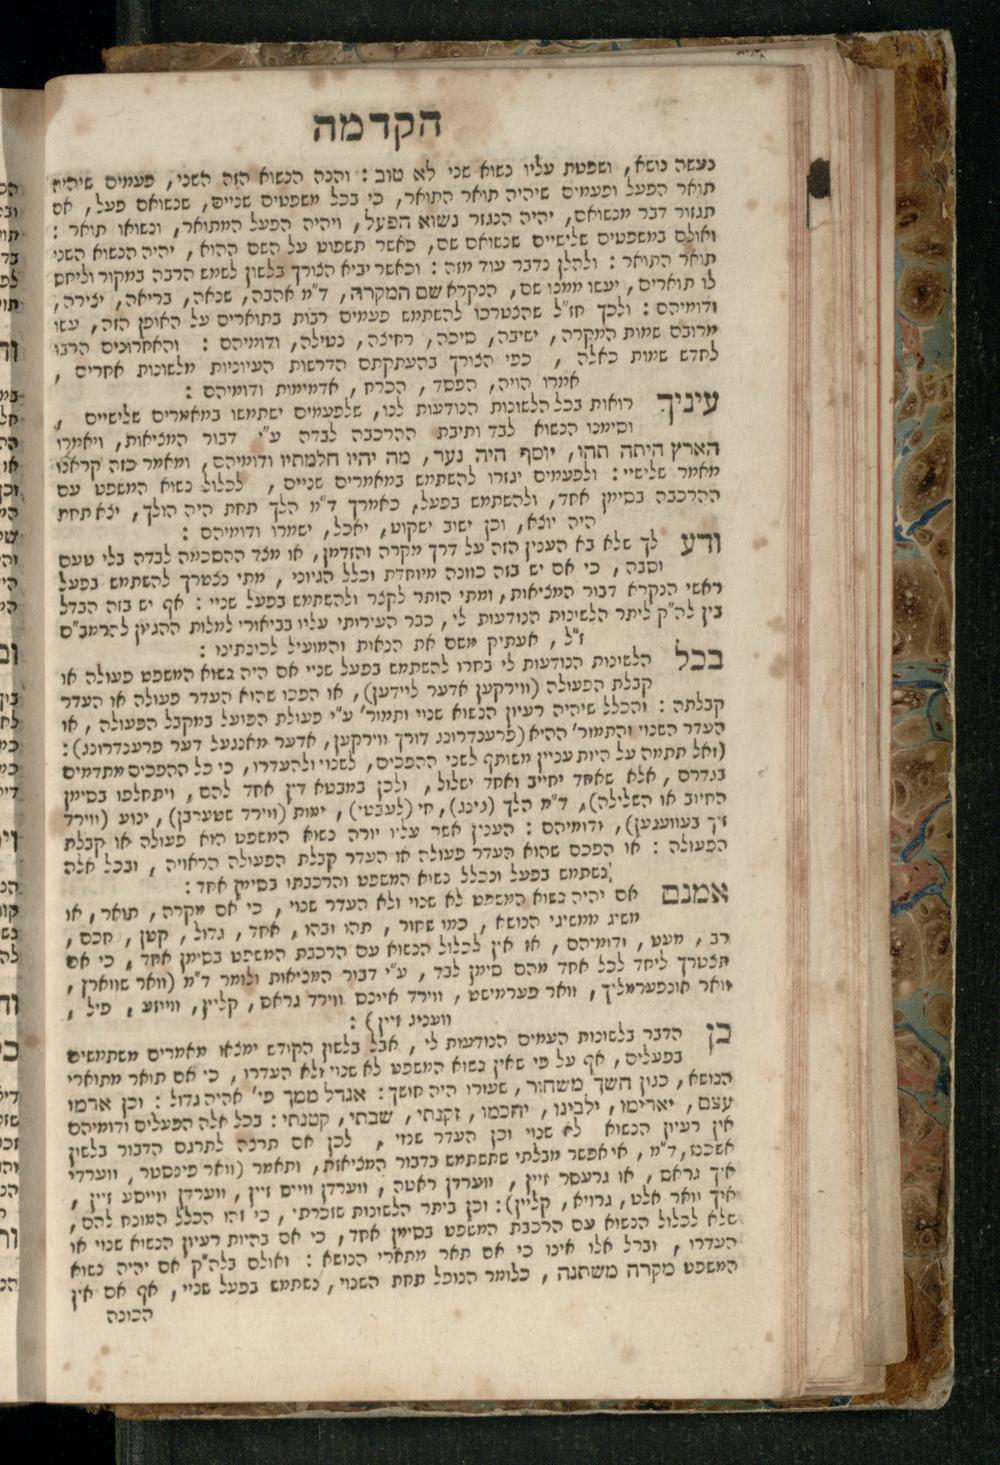 הקדמה
נעשה נושא, ושפטת עליו נשוא שני לא טוב : והנה הנשוא הזה השני, פעמים שיהיה
תואר הפעל ופעמים שיהיה תואר התואר, כי בכל משפטים שניים, שנשואם פעל, אם
תגזור דבר מנשואם, יהיה הנגזר נשוא הפעל, ויהיה הפעל המתואר, ונשואו תואר :
ואולם במשפטים שלישיים שנשואם שם, כאשר תשפוט על השם ההוא, יהיה הנשוא השני
תואר התואר : ולהלן נדבר עוד מזה : וכאשר יביא הצורך בלשון לשמש הרבה במקור וליחס
לו תוארים, יעשו ממנו שם, הנקרא שם המקרה, ד״מ אהבה, שנאה, בריאה, יצירה,
ודומיהם : ולכך חז״ל שהצטרכו להשתמש פעמים רבות בתוארים על האופן הזה, עשו
מרובם שמות המקרה, ישיבה, סיכה, רחיצה, נטילה, ודומיהם : והאחרונים הרבו
לחדש שמות כאלה , כפי הצורך בהעתקתם הדרשות העיוניות מלשונות אחרים ,
אמרו הויה, הפסד, הכרח, אדמימות ודומיהם :
עיניך רואות בכל הלשונות הנודעות לנו, שלפעמים ישתמשו במאמרים שלישיים ,
וסימנו הנשוא לבד ותיבת ההרכבה לבדה ע״י דבור המציאות, ויאמרו
הארץ היתה תהו, יוסף היה נער, מה יהיו חלמתיו ודומיהם, ומאמר כזה קראנו
מאמר שלישי : ולפעמים יגזרו להשתמש במאמרים שניים , לכלול נשוא המשפט עם
ההרכבה בסימן אחד, ולהשתמש בפעל, כאמרך ד״מ הלך תחת היה הולך, יצא תחת
היה יוצא, וכן ישוב ישקוט, יאכל, ישמרו ודומיהם :
ודע לך שלא בא הענין הזה על דרך מקרה והזדמן, או מצד ההסכמה לבדה בלי טעם
וסבה, כי אם יש בזה כוונה מיוחדת וכלל הגיוני , מתי נצטרך להשתמש בפעל
ראשי הנקרא דבור המציאות, ומתי הותר לקצר ולהשתמש בפעל שניי : אף יש בזה הבדל
בין לה״ק ליתר הלשונות הנודעות לי, כבר העירותי עליו בביאורי למלות ההגיון להרמב״ם
ז״ל , אעתיק משם את הנאות והמועיל לכונתינו :
בכל הלשונות הנודעות לי בחרו להשתמש בפעל שניי אם היה נשוא המשפט פעולה או
קבלת הפעולה (ווירקען אדער ליידען), או הפכו שהוא העדר פעולה או העדר
קבלתה : והכלל שיהיה רעיון הנשוא שנוי ותמור׳ ע״י פעולת הפועל במקבל הפעולה , או
העדר השנוי והתמור׳ ההיא (פרענדרונג דורך ווירקען, אדער מאנגעל דער פרענדרונג) :
(ואל תתמה על היות עניין משותף לשני ההפכים, לשנוי ולהעדרו, כי כל ההפכים מתדמים
בגדרם , אלא שאחד יחייב ואחד ישלול , ולכן במבטא דין אחד להם , ויתחלפו בסימן
החיוב או השלילה), ד״מ הלך (גינג), חי (לעבטי) , ימות (ווירד שטערבן) , ינוע (ווירד
זיך בעוועגען) , ודומיהם : הענין אשר עליו יורה נשוא המשפט הוא פעולה או קבלת
הפעולה : או הפכם שהוא העדר פעולה או העדר קבלת הפעולה הראויה , ובכל אלה
נשתמש בפעל ונכלל נשוא המשפט והרכבתו בסימן אחד :
אמנם אם יהיה נשוא המשפט לא שנוי ולא העדר שנוי , כי אם מקרה, תואר, או
משיג ממשיגי הנושא , כמו שחור , תהו ובהו , אחד , גדול , קטן , חכם ,
רב , מעט , ודומיהם , אז אין לכלול הנשוא עם הרכבת המשפט בסימן אחד , כי אם
תצטרך ליחד לכל אחד מהם סימן לבד , ע״י דבור המציאות ולומר ד״מ (וואר שווארץ ,
וואר אונפערמליך , וואר פערמישט , ווירד איינס ווירד גראס , קליין, ווייזע , פיל ,
וועניג זיין) :
כן הדבר בלשונות העמים הנודעות לי , אבל בלשון הקודש ימצאו מאמרים משתמשים
בפעלים , אף על פי שאין נשוא המשפט לא שנוי ולא העדרו , כי אם תואר מתוארי
הנושא , כגון חשך משחור , שעורו היה חושך : אגדל ממך פי׳ אהיה גדול : וכן ארמו
עצם , יאדימו , ילבינו , יחכמו , זקנתי , שבתי , קטנתי : בכל אלה הפעלים ודומיהם
אין רעיון הנשוא לא שנוי וכן העדר שנוי , לכן אם תרצה לתרגם הדבור בלשון
אשכנז, ד״מ , אי אפשר מבלתי שתשתמש בדבור המציאות, ותאמר (וואר פינסטר , ווערדי
איך גראס , או גרעסר זיין , ווערדן ראטה , ווערדן ווייס זיין , ווערדן ווייסע זיין ,
איך וואר אלט , גרויא , קליין) : וכן ביתר הלשונות שזכרתי , כי זהו הכלל המונח להם ,
שלא לכלול הנשוא עם הרכבת המשפט בסימן אחד, כי אם בהיות רעיון הנשוא שנוי או
העדרו , וברל אלו אינו כי אם תאר מתארי הנושא : ואולם בלה״ק אם יהיה נשוא
המשפט מקרה משתנה , כלומר הנופל תחת השנוי, נשתמש בפעל שניי , אף אם אין
הכונה